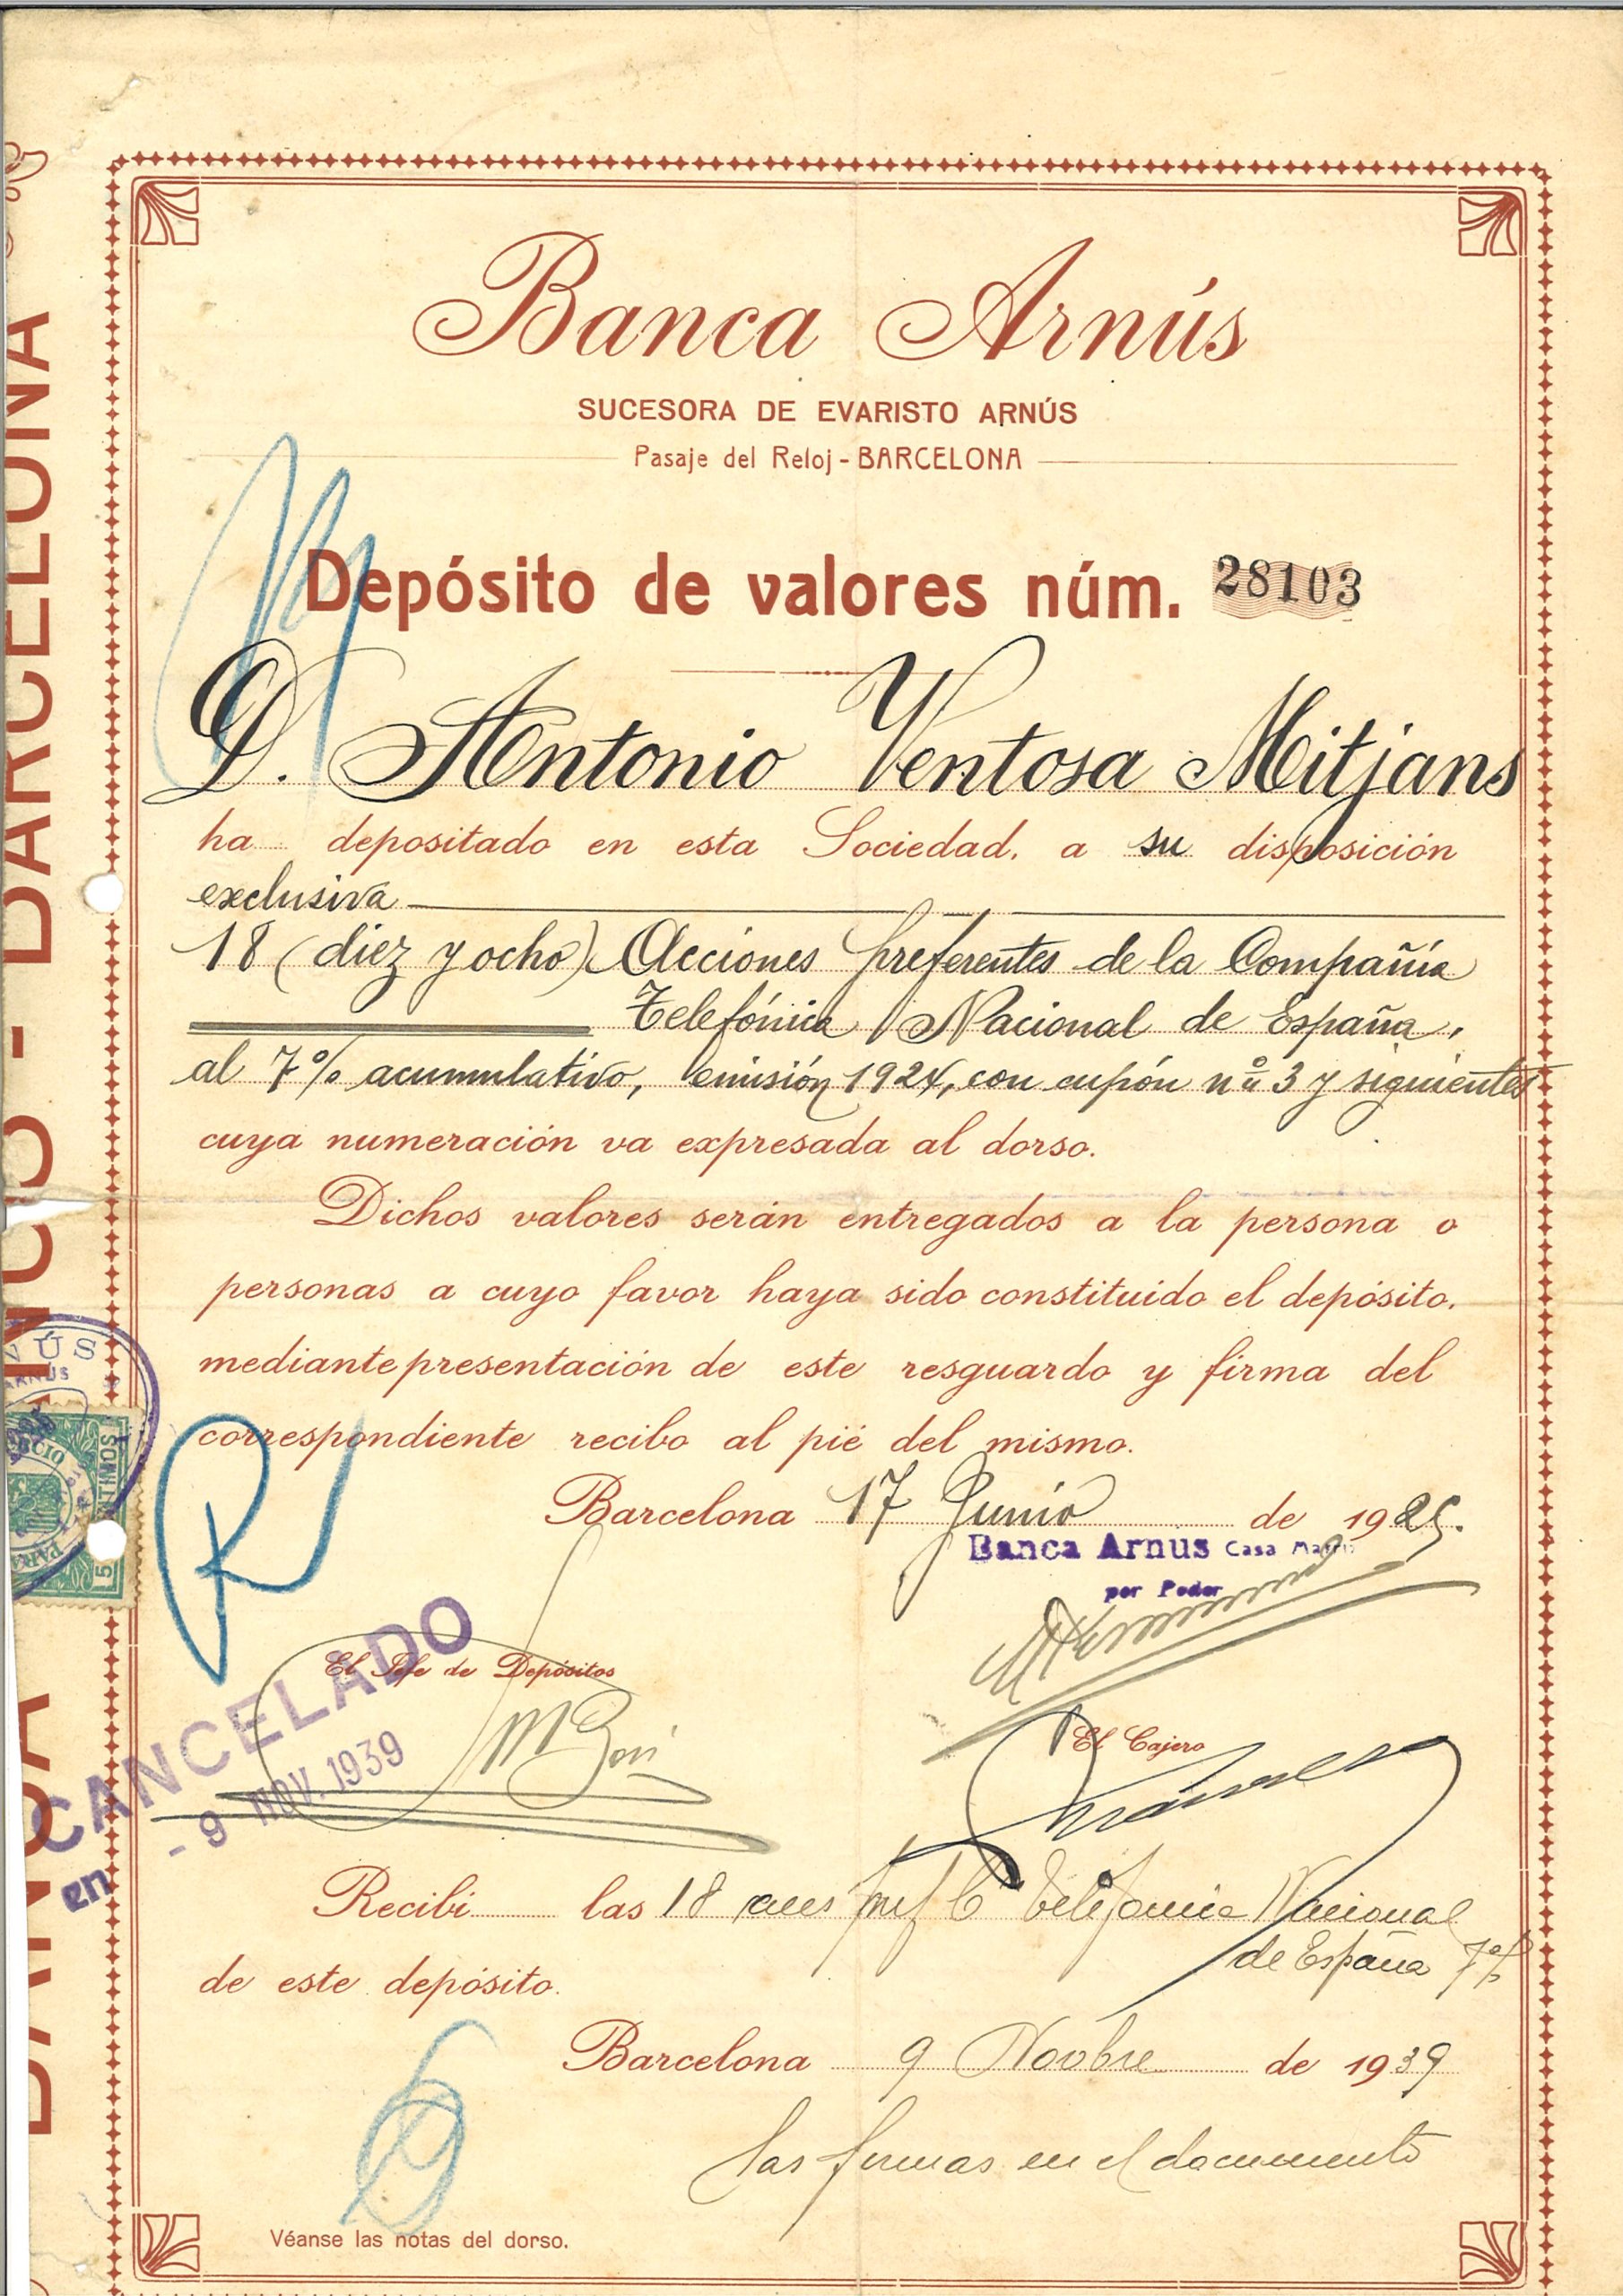 Banca Arnús
SUCESORA DE EVARISTO ARNÚS
Pasaje del Reloj - BARCELONA
Depósito de valores núm. 28103
D. Antonio Ventosa Mitjans
ha depositado en esta Sociedad, a su disposición
exclusiva
18 (diez y ocho) Acciones preferentes de la Compañía
Telefónica Nacional de España,
al 7% acumulativo, emisión 1924, con cupón nº 3 y siguientes
cuya numeración va expresada al dorso.
Dichos valores serán entregados a la persona o
personas a cuyo favor haya sido constituído el depósito,
mediante presentación de este resguardo y firma del
correspondiente recibo al pié del mismo.
Barcelona 17 Junio de 1925.
Banca Arnus Casa Matriz
por Poder
El Jefe de Depósitos
El Cajero
CANCELADO
en - 9 NOV. 1939
Recibí las 18 acces pref Cª Telefonica Nacional
de España 7%
de este depósito.
Barcelona 9 Novbre de 1939
las firmas en el documento
Véanse las notas del dorso.
BANCA ARNÚS - BARCELONA
NÚS
ARNÚS